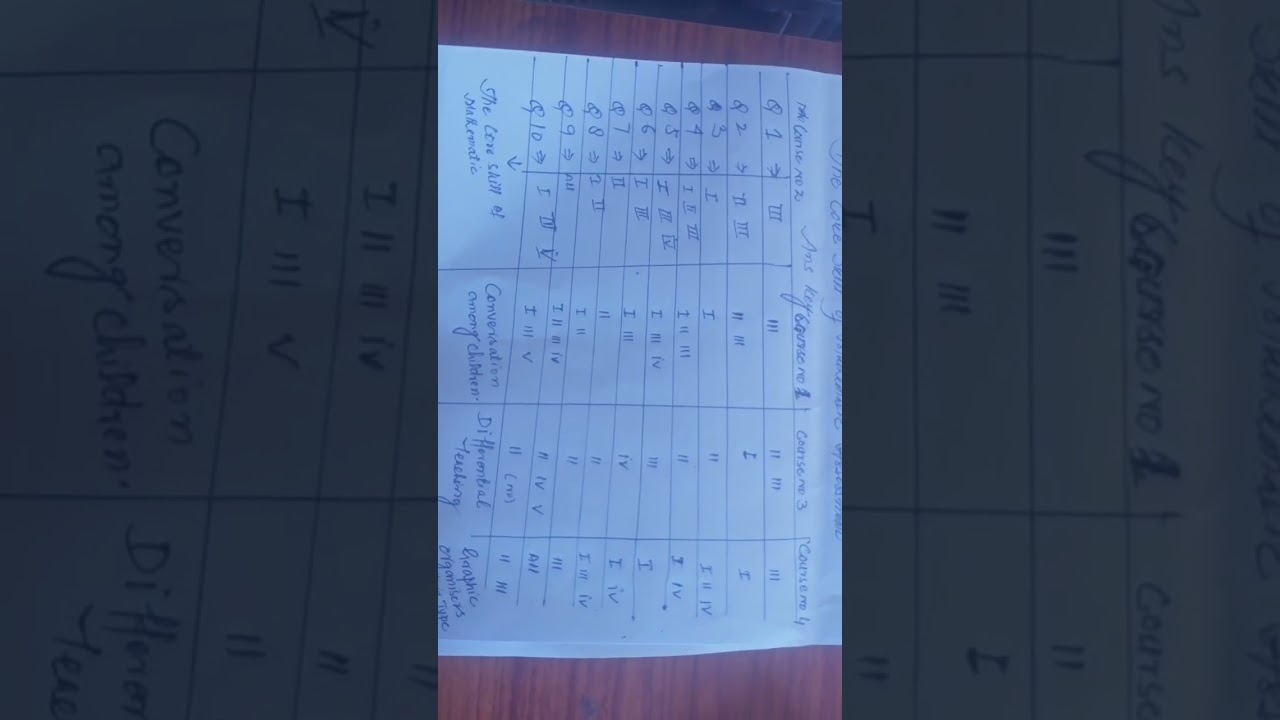 Course no 2. Ans Key Course no 1 Course no 3 Course no 4
Q 1 ⇒ III III II III III
Q 2 ⇒ II III II III I I
Q 3 ⇒ I I II I II IV
Q 4 ⇒ I II III I II III II I IV
Q 5 ⇒ I III IV I III iv III I
Q 6 ⇒ I III I III iv I iv
Q 7 ⇒ II II II I III iv
Q 8 ⇒ I II I II II III
Q 9 ⇒ All I II III iv II IV V All
Q 10 ⇒ I III V I III V II II III
The Core skill of Conversation Differential Graphic
Mathematic among children. Teaching organisers Type